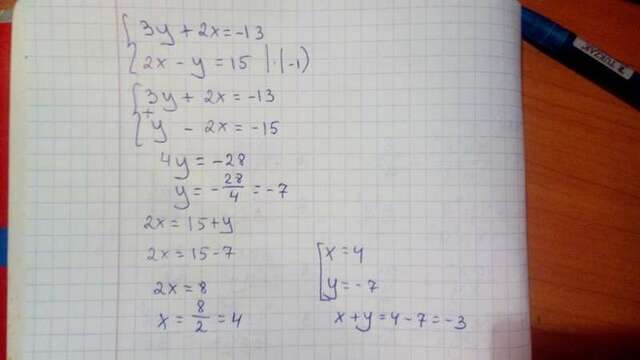 3y + 2x = -13
2x - y = 15 | · (-1)
3y + 2x = -13
+
y - 2x = -15
4y = -28
y = - 28/4 = -7
2x = 15 + y
2x = 15 - 7
2x = 8
x = 8/2 = 4
x = 4
y = -7
x + y = 4 - 7 = -3